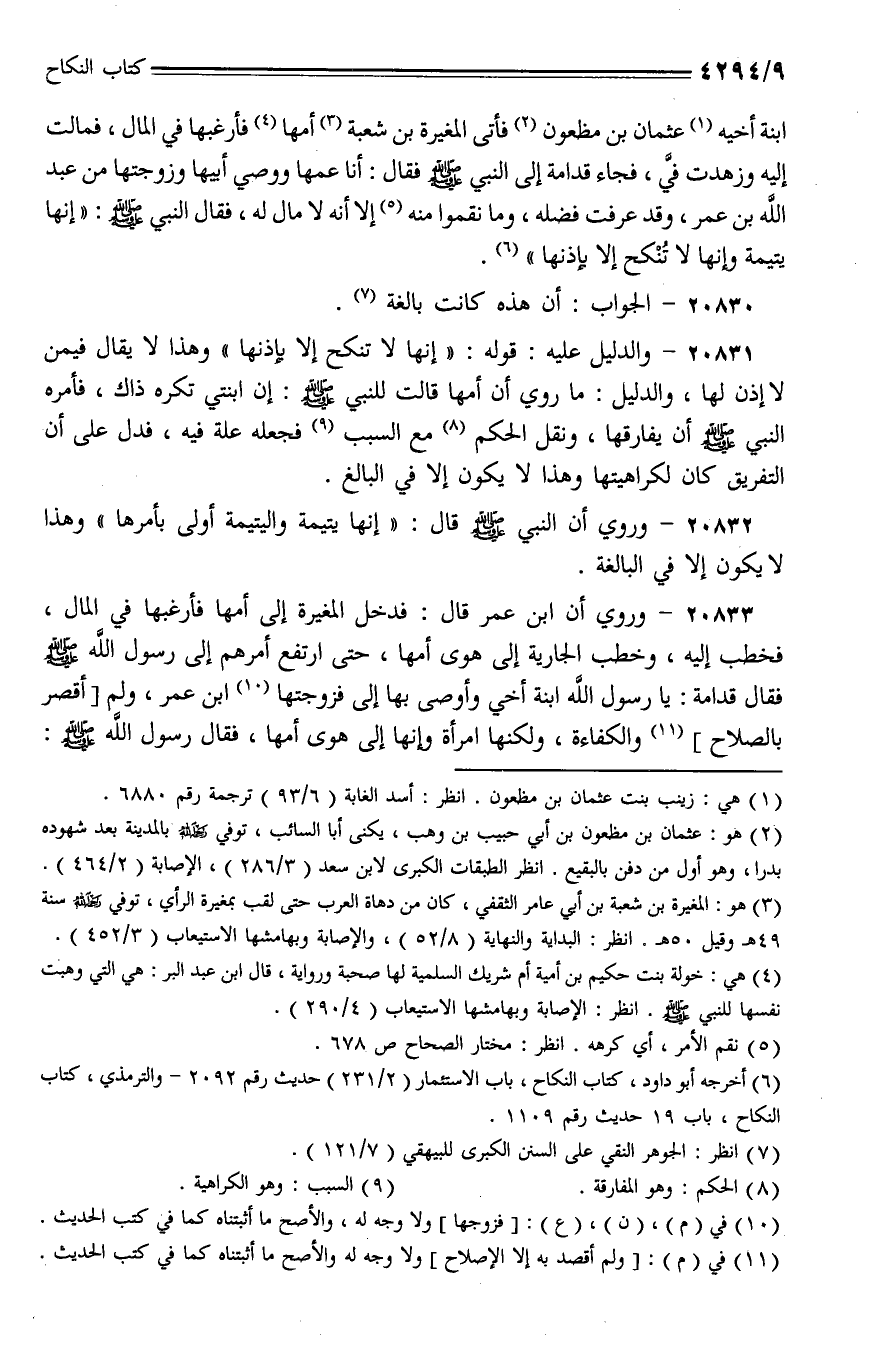 ٤٢٩٤/٩ كتاب النكاح
ابنة أخيه (١) عثمان بن مظعون (٢) فأتى المغيرة بن شعبة (٣) أمها (٤) فأرغبها في المال ، فمالت
إليه وزهدت فيَّ ، فجاء قدامة إلى النبي ﷺ فقال : أنا عمها ووصي أبيها وزوجتها من عبد
اللَّه بن عمر ، وقد عرفت فضله ، وما نقموا منه (٥) إلا أنه لا مال له ، فقال النبي ﷺ : « إنها
يتيمة وإنها لا تُنْكح إلا بإذنها » (٦) .
٢٠٨٣٠ - الجواب : أن هذه كانت بالغة (٧) .
٢٠٨٣١ - والدليل عليه : قوله : « إنها لا تنكح إلا بإذنها » وهذا لا يقال فيمن
لا إذن لها ، والدليل : ما روي أن أمها قالت للنبي ﷺ : إن ابنتي تكره ذاك ، فأمره
النبي ﷺ أن يفارقها ، ونقل الحكم (٨) مع السبب (٩) فجعله علة فيه ، فدل على أن
التفريق كان لكراهيتها وهذا لا يكون إلا في البالغ .
٢٠٨٣٢ - وروي أن النبي ﷺ قال : « إنها يتيمة واليتيمة أولى بأمرها » وهذا
لا يكون إلا في البالغة .
٢٠٨٣٣ - وروي أن ابن عمر قال : فدخل المغيرة إلى أمها فأرغبها في المال ،
فخطب إليه ، وخطب الجارية إلى هوى أمها ، حتى ارتفع أمرهم إلى رسول اللَّه ﷺ
فقال قدامة : يا رسول اللَّه ابنة أخي وأوصى بها إلى فزوجتها (١٠) ابن عمر ، ولم [ أقصر
بالصلاح ] (١١) والكفاءة ، ولكنها امرأة وإنها إلى هوى أمها ، فقال رسول اللَّه ﷺ :
(١) هي : زينب بنت عثمان بن مظعون . انظر : أسد الغابة ( ٩٣/٦ ) ترجمة رقم ٦٨٨٠ .
(٢) هو : عثمان بن مظعون بن أبي حبيب بن وهب ، يكنى أبا السائب ، توفي بالمدينة بعد شهوده
بدرا ، وهو أول من دفن بالبقيع . انظر الطبقات الكبرى لابن سعد ( ٢٨٦/٣ ) ، الإصابة ( ٤٦٤/٢ ) .
(٣) هو : المغيرة بن شعبة بن أبي عامر الثقفي ، كان من دهاة العرب حتى لقب بمغيرة الرأي ، توفي سنة
٤٩هـ وقيل ٥٠هـ . انظر : البداية والنهاية ( ٥٢/٨ ) ، والإصابة وبهامشها الاستيعاب ( ٤٥٢/٣ ) .
(٤) هي : خولة بنت حكيم بن أمية أم شريك السلمية لها صحبة ورواية ، قال ابن عبد البر : هي التي وهبت
نفسها للنبي ﷺ . انظر : الإصابة وبهامشها الاستيعاب ( ٢٩٠/٤ ) .
(٥) نقم الأمر ، أي كرهه . انظر : مختار الصحاح ص ٦٧٨ .
(٦) أخرجه أبو داود ، كتاب النكاح ، باب الاستئمار ( ٢٣١/٢ ) حديث رقم ٢٠٩٢ - والترمذي ، كتاب
النكاح ، باب ١٩ حديث رقم ١١٠٩ .
(٧) انظر : الجوهر النقي على السنن الكبرى للبيهقي ( ١٢١/٧ ) .
(٨) الحكم : وهو المفارقة . (٩) السبب : وهو الكراهية .
(١٠) في ( م ) ، ( ن ) ، ( ع ) : [ فزوجها ] ولا وجه له ، والأصح ما أثبتناه كما في كتب الحديث .
(١١) في ( م ) : [ ولم أقصد به إلا الإصلاح ] ولا وجه له والأصح ما أثبتناه كما في كتب الحديث .